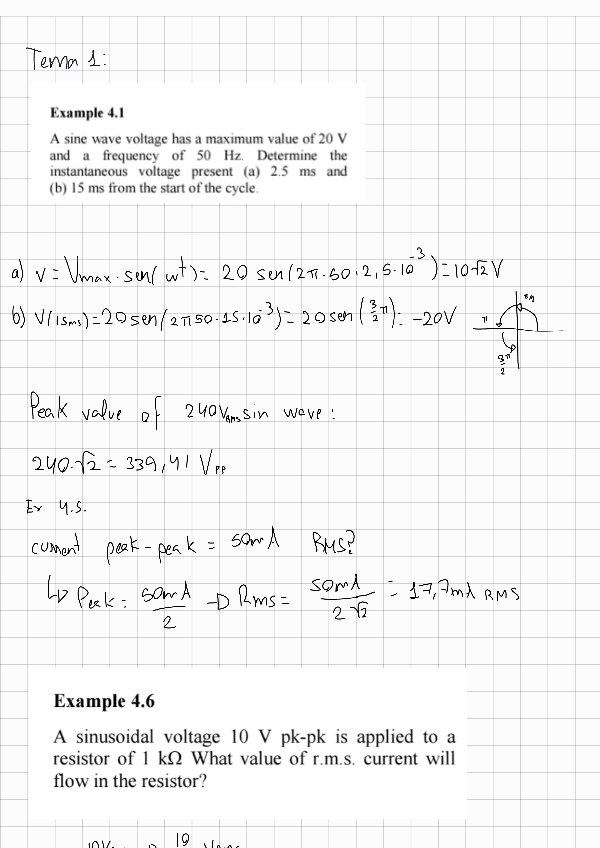 Tema 1:
Example 4.1
A sine wave voltage has a maximum value of 20 V
and a frequency of 50 Hz. Determine the
instantaneous voltage present (a) 2.5 ms and
(b) 15 ms from the start of the cycle.
a) V = Vmax · sen(wt) = 20 sen(2π·50·2,5·10⁻³) = 10√2 V
b) V(15ms) = 20 sen(2π50·15·10⁻³) = 20 sen(3/2 π) = -20V
π
3/2 π
Peak value of 240VRMS sin wave:
240·√2 = 339,41 Vpp
Ex 4.5.
current peak-peak = 50mA RMS?
↳ Peak = 50mA/2 → Rms = 50mA/2√2 = 17,7mA RMS
Example 4.6
A sinusoidal voltage 10 V pk-pk is applied to a
resistor of 1 kΩ What value of r.m.s. current will
flow in the resistor?